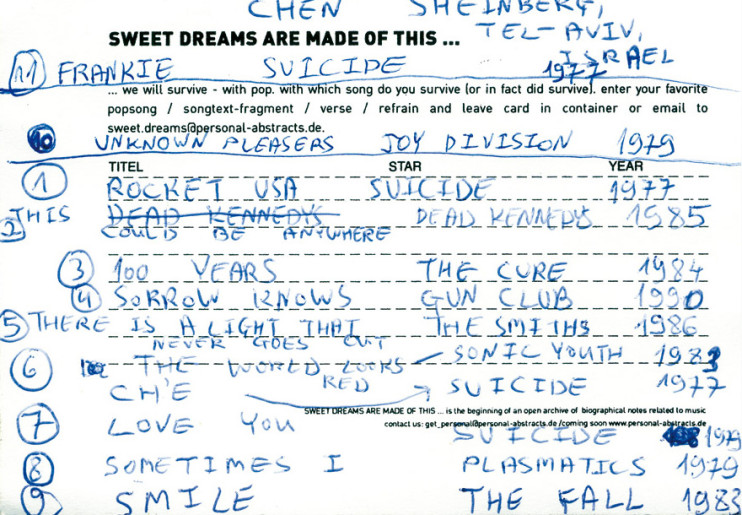 CHEN SHEINBERG,
SWEET DREAMS ARE MADE OF THIS ... TEL-AVIV,
ISRAEL
11 FRANKIE SUICIDE 1977
... we will survive - with pop. with which song do you survive (or in fact did survive). enter your favorite
popsong / songtext-fragment / verse / refrain and leave card in container or email to
sweet.dreams@personal-abstracts.de.
10 UNKNOWN PLEASERS JOY DIVISION 1979
TITEL STAR YEAR
1 ROCKET USA SUICIDE 1977
2 THIS DEAD KENNEDYS DEAD KENNEDYS 1985
COULD BE ANYWHERE
3 100 YEARS THE CURE 1984
4 SORROW KNOWS GUN CLUB 1990
5 THERE IS A LIGHT THAT THE SMITHS 1986
NEVER GOES OUT
6 THE WORLD LOOKS SONIC YOUTH 1983
RED
CH'E SUICIDE 1977
SWEET DREAMS ARE MADE OF THIS ... is the beginning of an open archive of biographical notes related to music
contact us: get_personal@personal-abstracts.de /coming soon www.personal-abstracts.de
7 LOVE YOU SUICIDE 1979
8 SOMETIMES I PLASMATICS 1979
9 SMILE THE FALL 1983